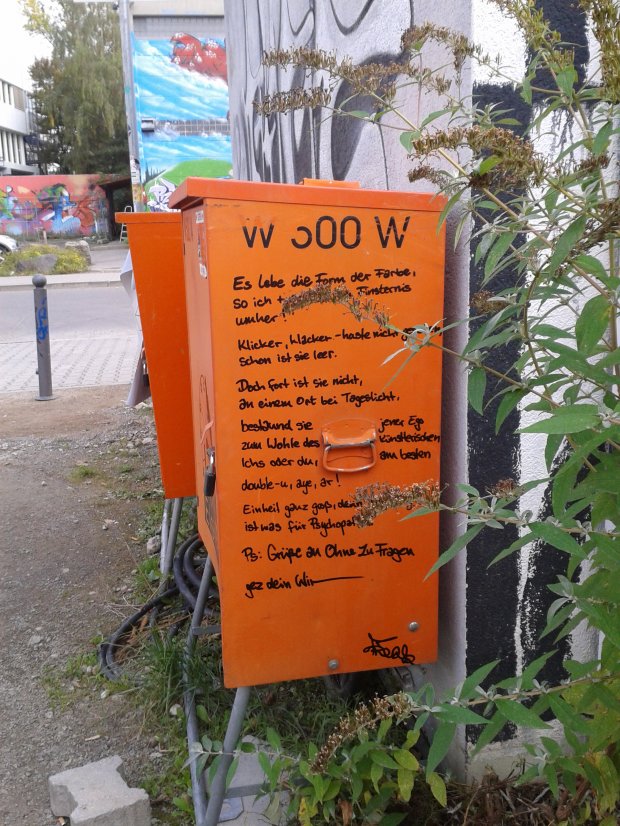 W 300 W
Es lebe die Form der Farbe,
so ich Finsternis
umher
Klicker, klacker - haste nicht
schon ist sie leer.
Doch fort ist sie nicht,
an einem Ort bei Tageslicht,
bestaund sie jener Ego
zum Wohle des künstlerischen
Ichs oder du, am besten
double-u, aye, ar!
Einheil ganz groß, denn
ist was für Psychopat
Ps: Grüße an Ohne Zu Fragen
gez dein Wir